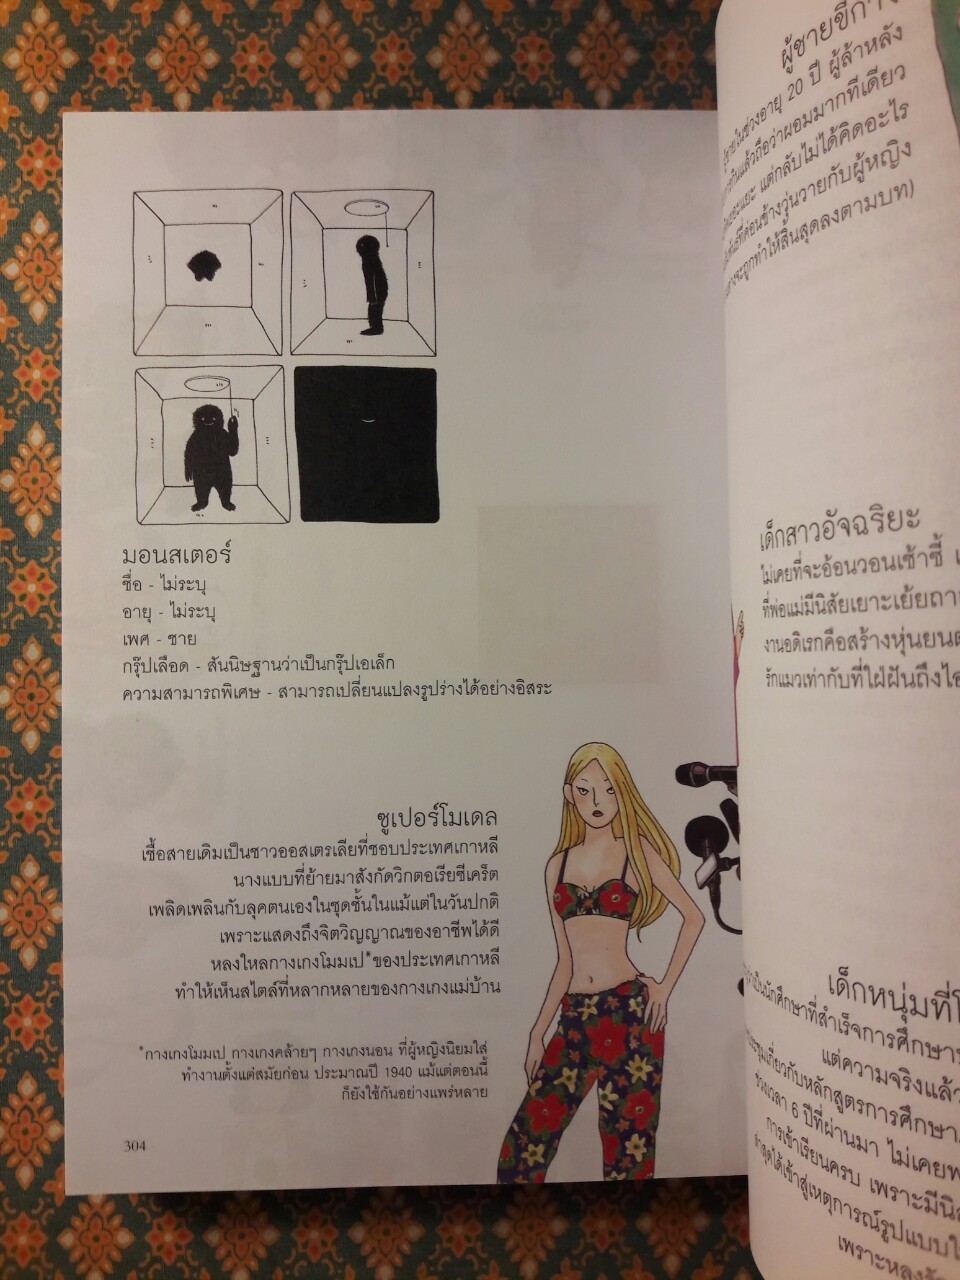 มอนสเตอร์
ชื่อ - ไม่ระบุ
อายุ - ไม่ระบุ
เพศ - ชาย
กรุ๊ปเลือด - สันนิษฐานว่าเป็นกรุ๊ปเอเล็ก
ความสามารถพิเศษ - สามารถเปลี่ยนแปลงรูปร่างได้อย่างอิสระ
ซูเปอร์โมเดล
เชื้อสายเดิมเป็นชาวออสเตรเลียที่ชอบประเทศเกาหลี
นางแบบที่ย้ายมาสังกัดวิกตอเรียซีเคร็ต
เพลิดเพลินกับลุคตนเองในชุดชั้นในแม้แต่ในวันปกติ
เพราะแสดงถึงจิตวิญญาณของอาชีพได้ดี
หลงใหลกางเกงโมมเป*ของประเทศเกาหลี
ทำให้เห็นสไตล์ที่หลากหลายของกางเกงแม่บ้าน
*กางเกงโมมเป กางเกงคล้ายๆ กางเกงนอน ที่ผู้หญิงนิยมใส่
ทำงานตั้งแต่สมัยก่อน ประมาณปี 1940 แม้แต่ตอนนี้
ก็ยังใช้กันอย่างแพร่หลาย
304
ผู้ชายขี้
ในช่วงอายุ 20 ปี ผู้ล้าหลัง
แล้วถือว่าผอมมากทีเดียว
แต่กลับไม่ได้คิดอะไร
ที่ค่อนข้างวุ่นวายกับผู้หญิง
จะถูกทำให้สิ้นสุดลงตามบท)
เด็กสาวอัจฉริยะ
ไม่เคยที่จะอ้อนวอนเซ้าซี้
ที่พ่อแม่มีนิสัยเยาะเย้ย
งานอดิเรกคือสร้างหุ่นยนต์
รักแมวเท่ากับที่ใฝ่ฝันถึง
เด็กหนุ่มที่
เป็นนักศึกษาที่สำเร็จการศึกษา
แต่ความจริงแล้ว
เกี่ยวกับหลักสูตรการศึกษา
ช่วงเวลา 6 ปีที่ผ่านมา ไม่เคย
การเข้าเรียนครบ เพราะมี
ล่าสุดได้เข้าสู่เหตุการณ์รูปแบบ
เพราะหลง